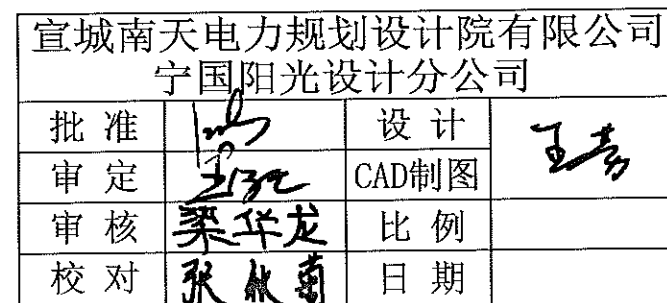 宣城南天电力规划设计院有限公司
宁国阳光设计分公司
批 准 设 计
审 定 CAD制图
审 核 梁华龙 比 例
校 对 日 期